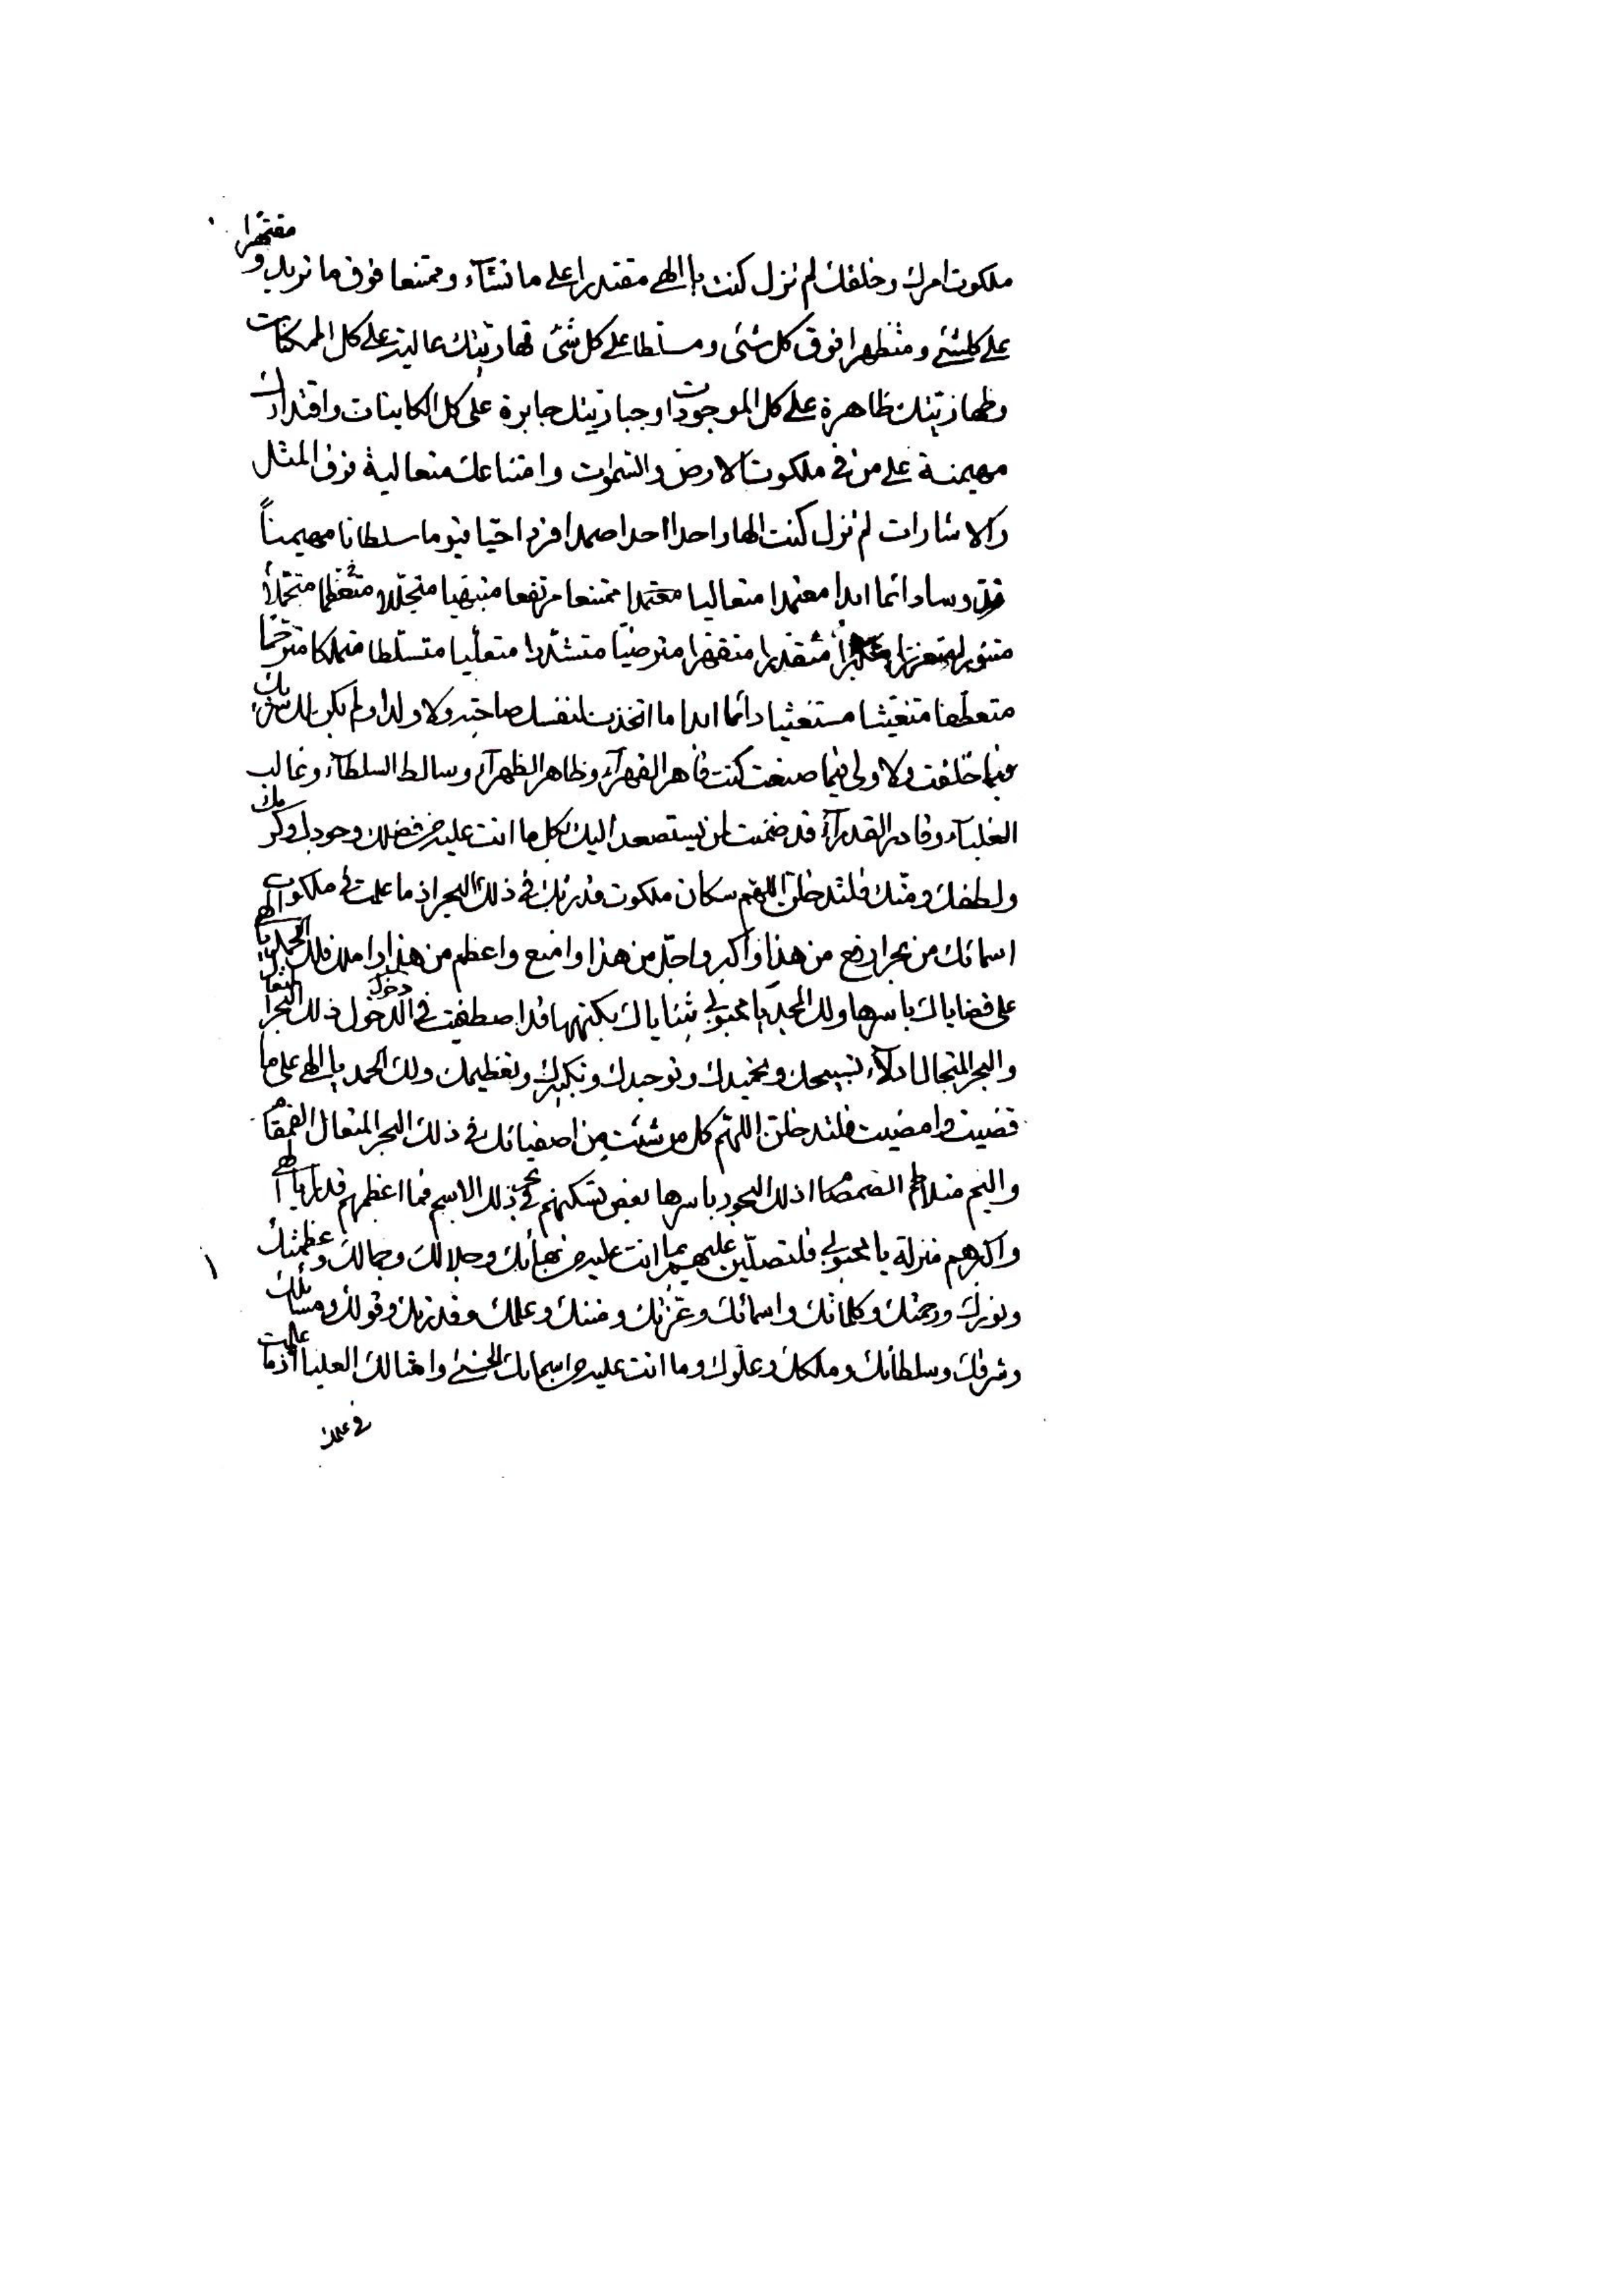 ملكوت امرك و خلقك لم تزل كنت يا الهي مقتدرا على ما تشآء و ممتنعا فوق ما تريد و مقتهرا
على كلشئ و متظهرا فوق كل شئ و مسلطا على كل شئ قهاريتك عالية على كل الممكنات
و ظهاريتك ظاهرة على كل الموجودات و جباريتك جابرة على كل الكاينات و اقتدارك
مهيمنة على من في ملكوت الارض و السموات و امتناعك متعالية فوق المثل
و الاشارات لم تزل كنت الها واحدا احدا صمدا فردا حيا قيوما سلطانا مهيمناً
قدوسا دائما ابدا معتمدا متعاليا معتمدا ممتنعا مرتفعا مبتهيا متجللا متعظما متجملاً
متنورا متعززا متقدرا متقهرا مترضيا متسلطا متملكا مترحما
متعطفا متغيثا مستغيثا دائما ابدا ما اتخذت لنفسك صاحبة و لا ولدا و لم يكن لك شريك
فيما خلقت و لا ولي فيما صنعت كنت قاهر القهرآء و ظاهر الظهرآء و سالط السلطآء و غالب
الغلبآء و قادر القدرآء قد ضمنت لمن يستصعد اليك بكل ما انت عليه من فضلك و جودك و كرمك
و لطفك و منك فلتدخلن اللهم سكان ملكوت قدرتك في ذلك البحر اذ ما علمت في ملكوت
اسمائك من بحر ارفع من هذا و اكبر و اجل من هذا و امنع و اعظم من هذا فلك الحمد يا الهي
على قضاياك باسرها و لك المجد يا محبوبي ثناياك بكنهها قد اصطفيت في الدخول ذلك البحر المتعال
و البحر المتجال ادلآء تسبيحك و تحميدك و توحيدك و تكبيرك و تعظيمك و لك الحمد يا الهي على ما
قضيت و امضيت فلتدخلن اللهم كل من شئت من اصفيائك في ذلك البحر المتعال القمقام
و اليم متلاطم الضمضام اذ ذلك البحور باسرها بعض تسكنهم في بحر ذلك الاسم فما اعظمهم قدرا يا الهي
و اكبرهم منزلة يا محبوبي فلتصلين عليهم بما انت عليه من بهائك و جلالك و جمالك و عظمتك
و نورك و رحمتك و كلماتك و اسمائك و عزتك و مشيتك و علمك و قدرتك و قولك و مسائلك
و شرفك و سلطانك و ملكك و علوك و ما انت عليه من اسمائك الحسنى و امثالك العليا اذ ما علمت
في علمك